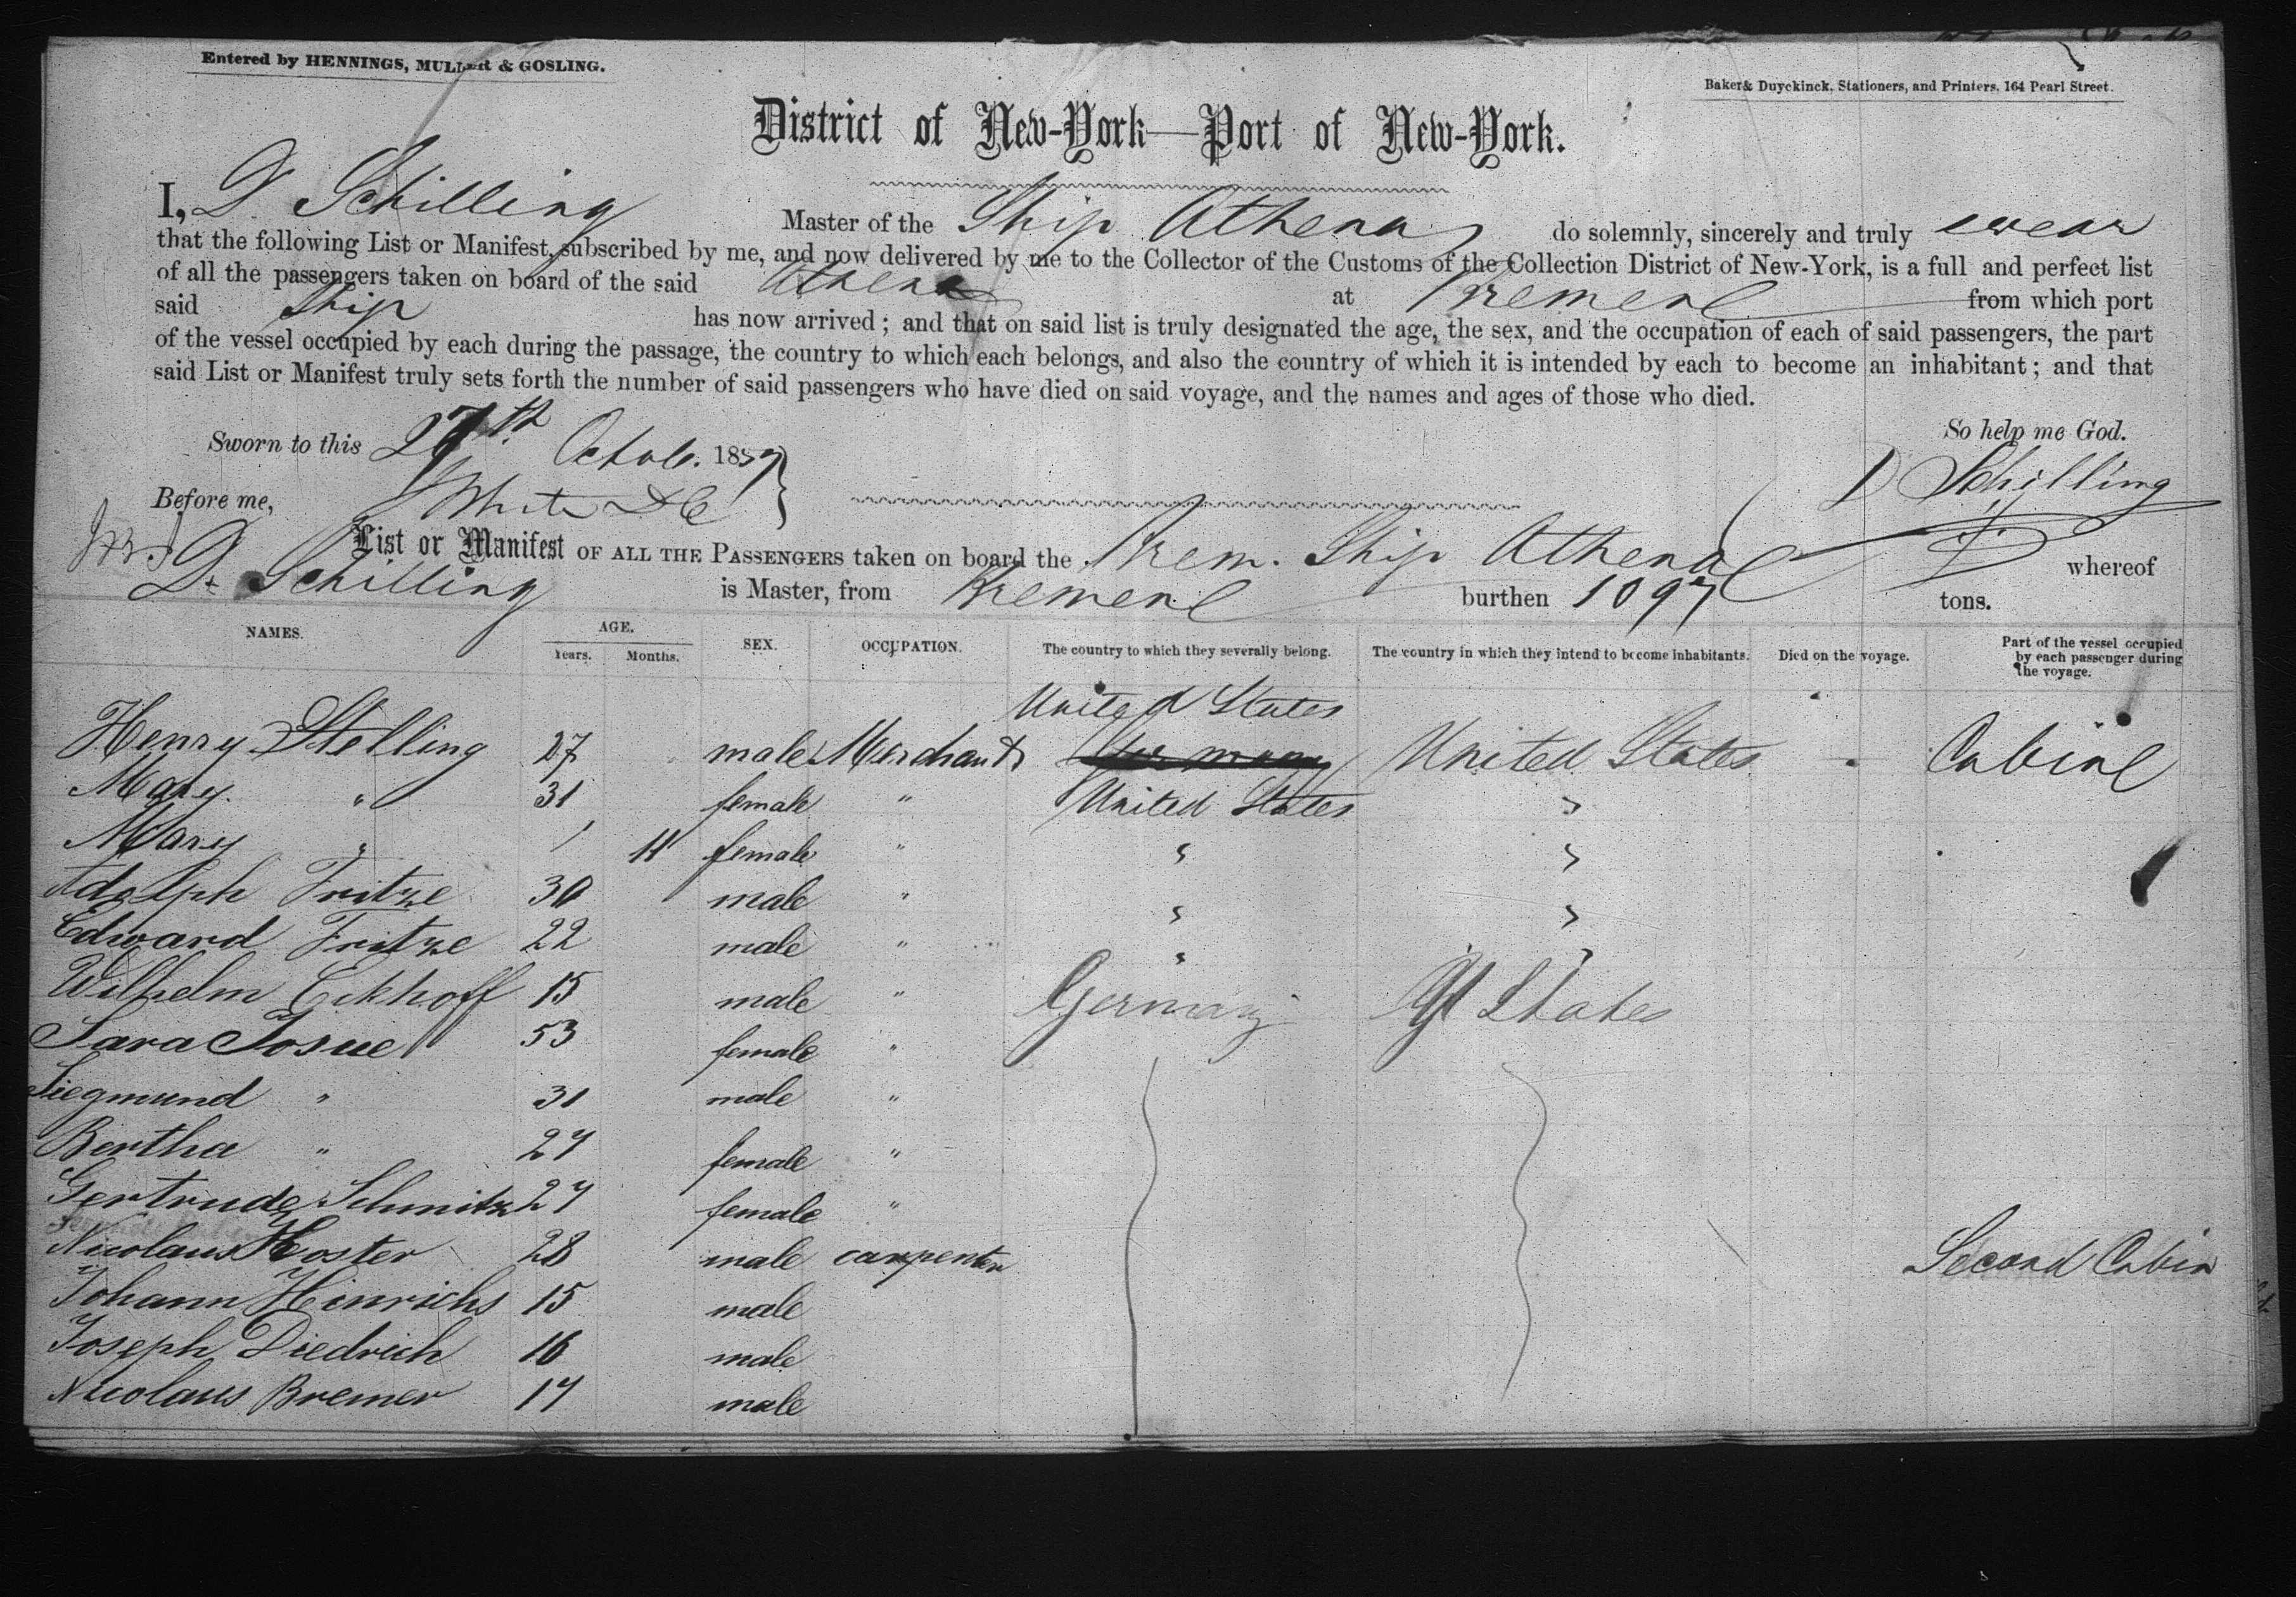 Entered by HENNINGS, MULLER & GOSLING.
Baker & Duyckinck, Stationers, and Printers, 164 Pearl Street.
District of New-York—Port of New-York.
I, D. Schilling Master of the Ship Athena do solemnly, sincerely and truly swear
that the following List or Manifest, subscribed by me, and now delivered by me to the Collector of the Customs of the Collection District of New-York, is a full and perfect list
of all the passengers taken on board of the said Athena at Bremen from which port
said Ship has now arrived; and that on said list is truly designated the age, the sex, and the occupation of each of said passengers, the part
of the vessel occupied by each during the passage, the country to which each belongs, and also the country of which it is intended by each to become an inhabitant; and that
said List or Manifest truly sets forth the number of said passengers who have died on said voyage, and the names and ages of those who died.
So help me God.
Sworn to this 27th Octob. 1857
D Schilling
Before me,
List or Manifest OF ALL THE PASSENGERS taken on board the Brem. Ship Athena whereof
D. Schilling is Master, from Bremen burthen 1097 tons.
NAMES. AGE. Years. Months. SEX. OCCUPATION. The country to which they severally belong. The country in which they intend to become inhabitants. Died on the voyage. Part of the vessel occupied by each passenger during the voyage.
United States
Henry Stelling 27 male Merchant Germany United States Cabine
Mary " 31 female " United States "
Mary " 1 11 female " " "
Adolph Fritze 30 male " " "
Edward Fritze 22 male " " "
Wilhelm Eckhoff 15 male " Germany U States
Sara Josue 53 female "
Siegmund " 31 male "
Bertha " 27 female "
Gertrude Schmitz 27 female "
Nicolaus Hoster 28 male carpenter Second Cabin
Johann Hinrichs 15 male
Joseph Diedrich 16 male
Nicolaus Bremer 17 male